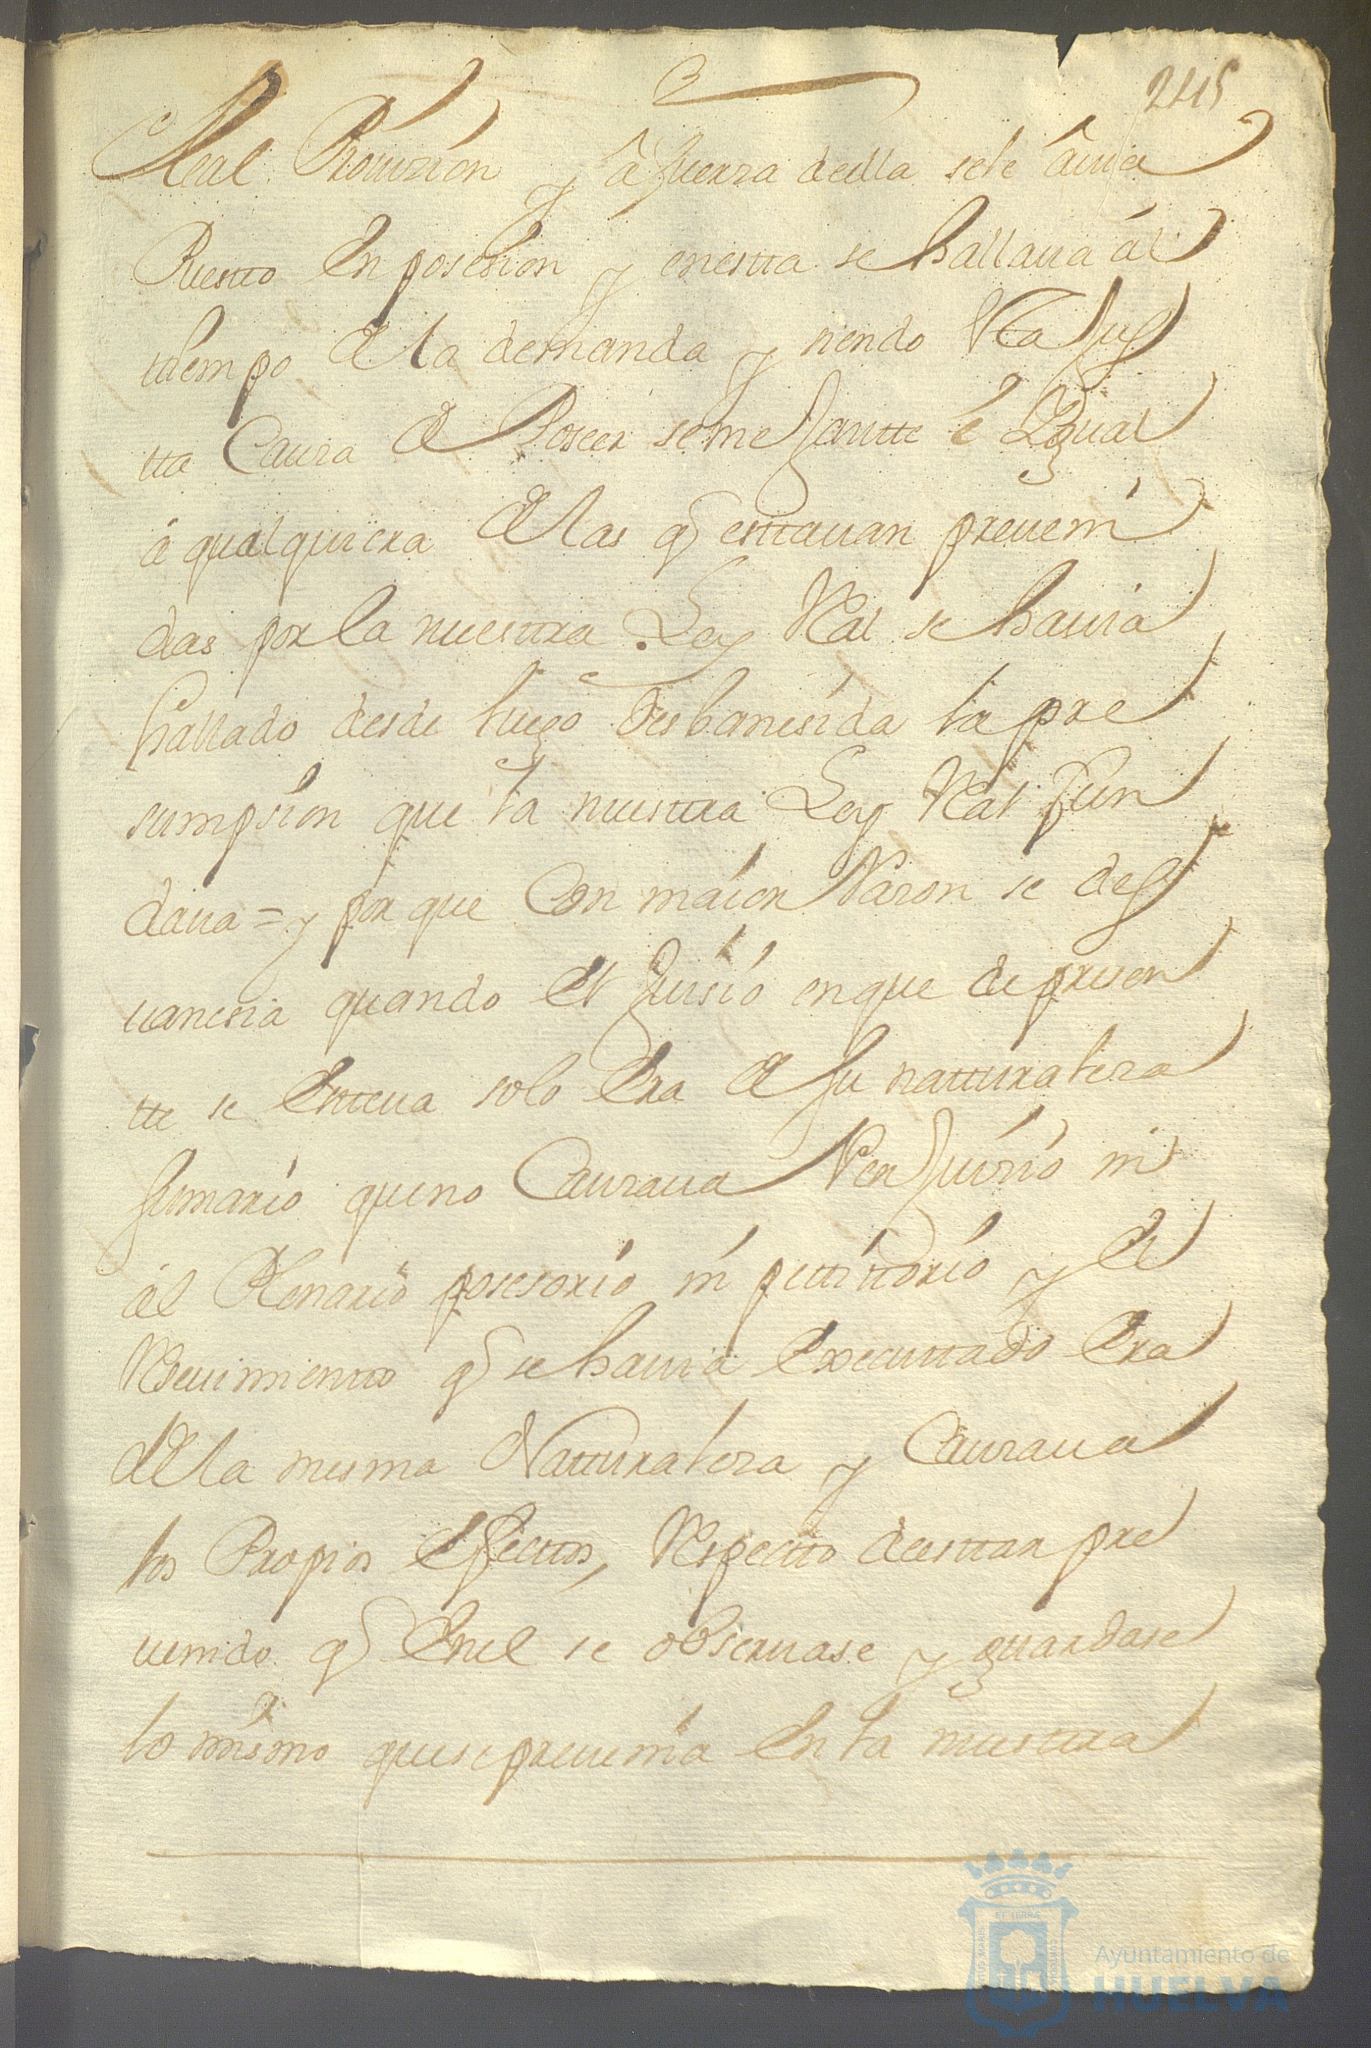 3
245
Real Provizion y a fuerza de ella sele avia
Puesto En posesion y en estta se hallava al
ttiempo de la demanda y siendo Esta Jus
tta Causa de Poseer semejantte e Ygual
a qualquiera de las q esttavan preveni
das por la nuesttra Ley Real se havia
hallado desde luego desbanesida la pre
sumpsion que la nuesttra Ley Real fun
dava = y por que Con maior Razon se des
vanesia quando el Juisio en que de presen
tte se Esttava solo Era de su natturalesa
sumario que no Causava Perjuisio ni
al Plenario posesorio ni petittorio y el
Resevimientto q se havia Executtado Era
de la mesma Natturalesa y Causava
los Propios Efecttos, Respectto de esttar pre
venido q En el se observase y guardase
lo mismo que se prevenia En la nuesttra
Ayuntamiento de
HUELVA